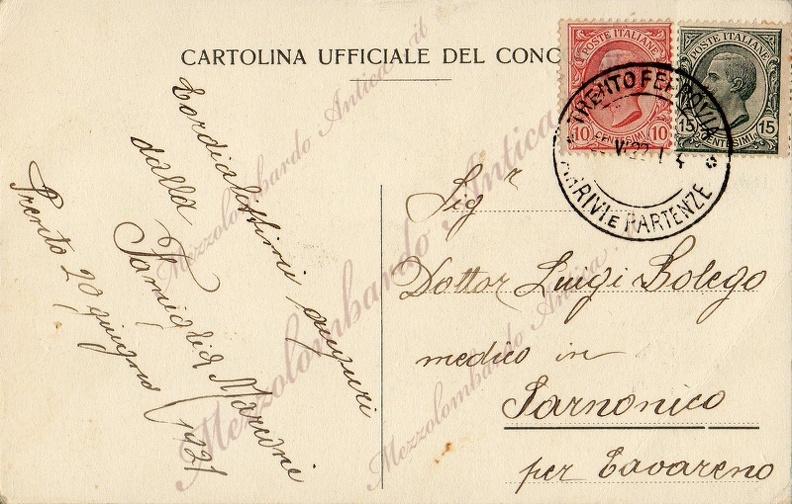 CARTOLINA UFFICIALE DEL CONC
POSTE ITALIANE
10 CENTESIMI 10
POSTE ITALIANE
15 CENTESIMI 15
TRENTO FERROVIA
ARRIVI E PARTENZE
Cordialissimi auguri
dalla
Famiglia Marconi
Trento 20 giugno 1921
Sigʳ
Dottor Luigi Bolego
medico in
Sarnonico
per Cavareno
Mezzolombardo Antica.it
Mezzolombardo Antica
Mezzolombardo Antica